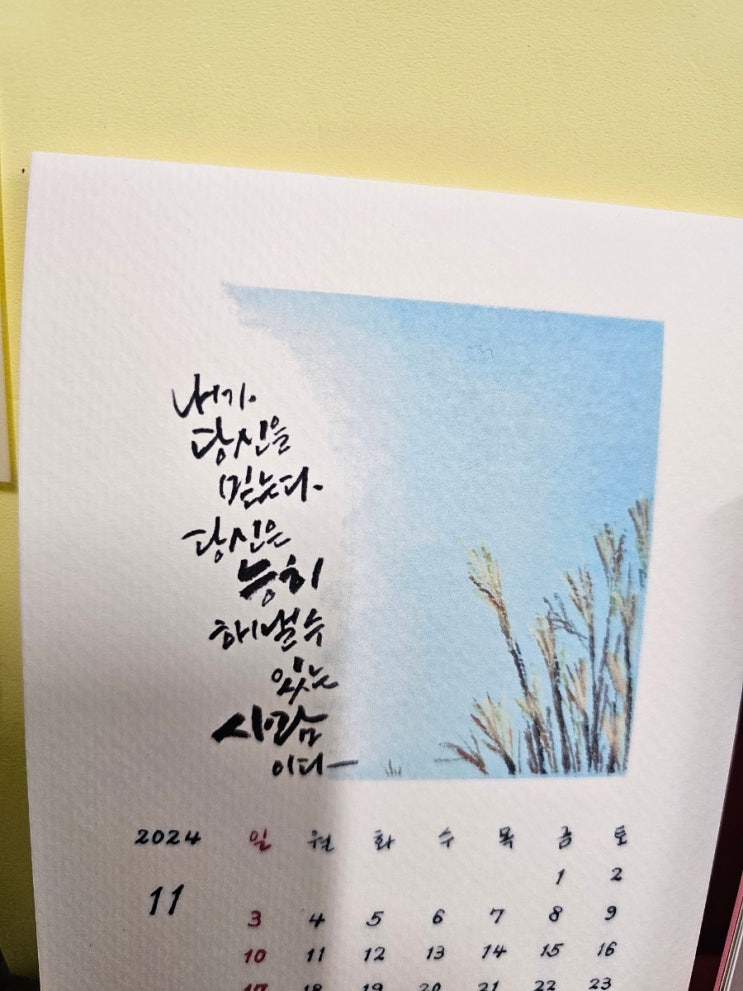 내가
당신을
믿는다.
당신은
능히
해낼 수
있는
사람
이다
2024 일 월 화 수 목 금 토
11
1 2
3 4 5 6 7 8 9
10 11 12 13 14 15 16
17 18 19 20 21 22 23